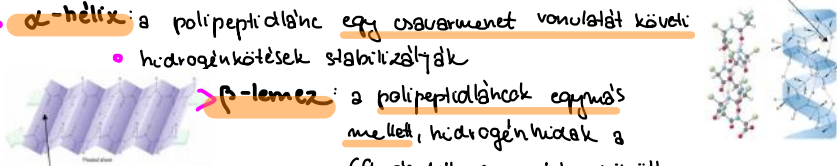 α-hélix: a polipeptidlánc egy csavarmenet vonulatát követi
• hidrogénkötések stabilizálják
> β-lemez: a polipeptidláncok egymás
mellett, hidrogénhidak a
Pleated sheet